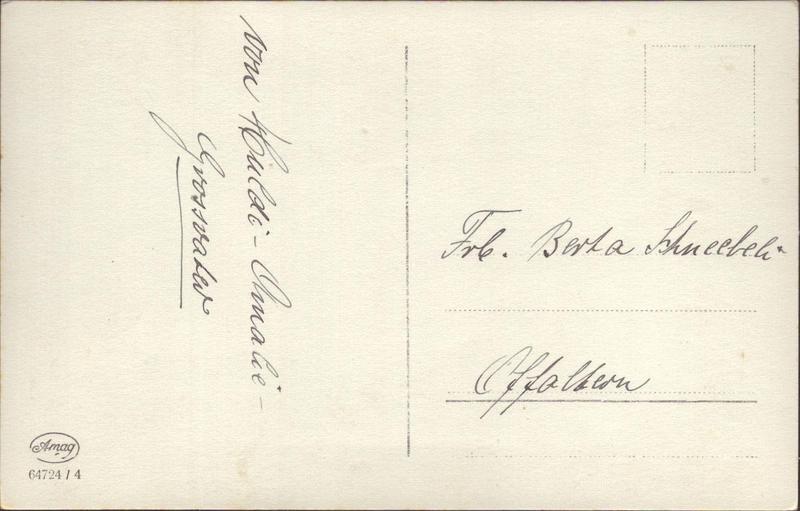 von Huldi - Amalie -
Grossvater
Frl. Berta Schneebeli
Affoltern
Amag
64724 / 4